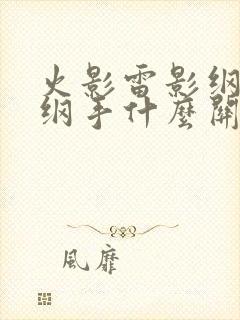 火影雷影纲
纲手什麼關
風靡